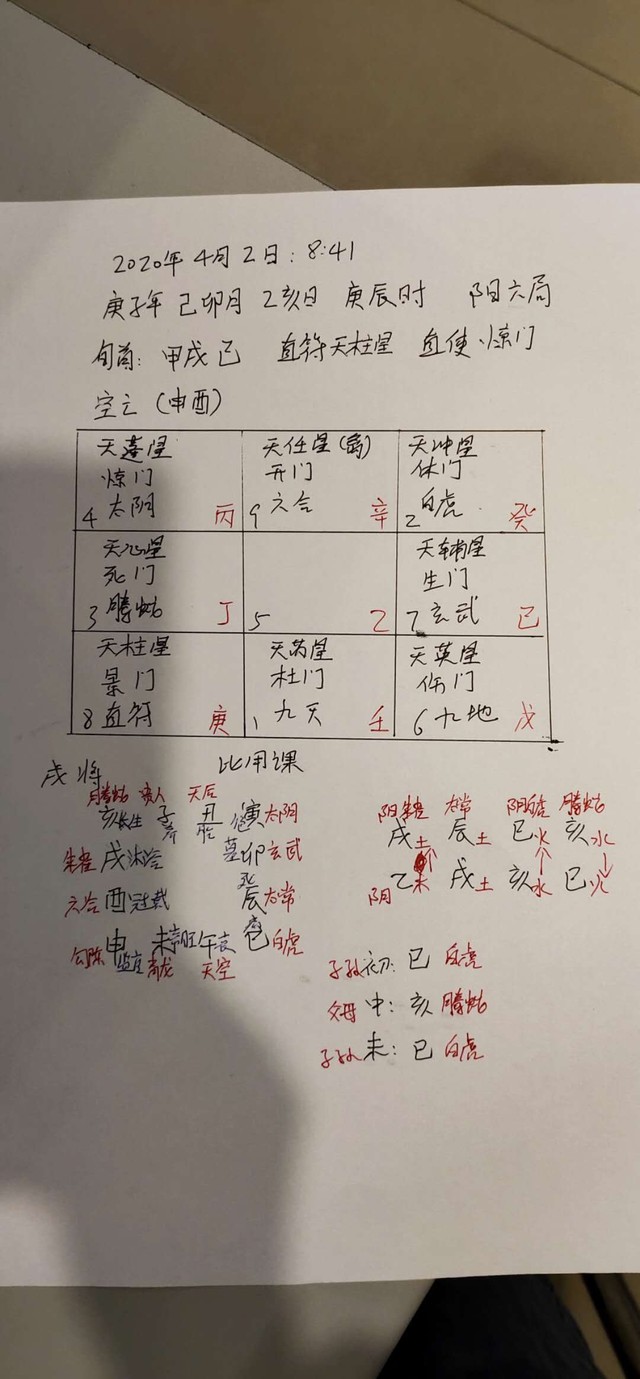 2020年 4月 2日：8:41
庚子年 己卯月 乙亥日 庚辰时 阳六局
旬首：甲戌己 直符天柱星 直使惊门
空亡（申酉）
天蓬星 天任星(禽) 天冲星
惊门 开门 休门
4 太阴 丙 9 六合 辛 2 白虎 癸
天心星 天辅星
死门 生门
3 腾蛇 丁 5 乙 7 玄武 己
天柱星 天芮星 天英星
景门 杜门 伤门
8 直符 庚 1 九天 壬 6 九地 戊
戌将 比用课
腾蛇 贵人 天后
亥长生 子养 丑胎 寅 太阴
朱雀 戌沐浴 墓卯 玄武
六合 酉冠戴 死辰 太常
勾陈 申 未 帝旺 午衰 巳 白虎
青龙 天空
阴 朱雀 太常 阴 白虎 腾蛇
戌土 辰土 巳火 亥水
阴 乙未 戌土 亥水 巳火
子孙 初：巳 白虎
父母 中：亥 腾蛇
子孙 末：巳 白虎